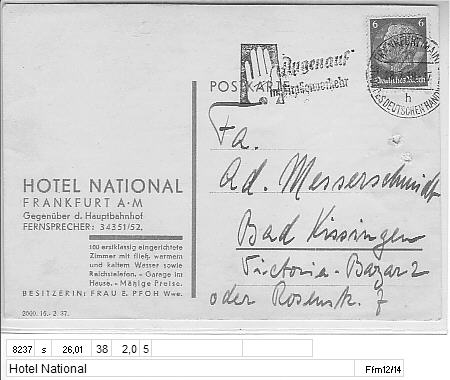 Augen auf
im Straßenverkehr
6 6
Deutsches Reich
FRANKFURT (MAIN)
h
DES DEUTSCHEN HAND
POSTKARTE
Fa.
Ad. Messerschmidt
Bad Kissingen
Victoria-Bazar 2
oder Rosenstr. 7
HOTEL NATIONAL
FRANKFURT A·M
Gegenüber d. Hauptbahnhof
FERNSPRECHER: 34351/52.
100 erstklassig eingerichtete
Zimmer mit fließ. warmem
und kaltem Wasser sowie
Reichstelefon. - Garage im
Hause. - Mäßige Preise.
BESITZERIN: FRAU E. PFOH Wwe.
2000. 16. 2. 37.
8237 s 26,01 38 2,0 5
Hotel National Ffm12/14